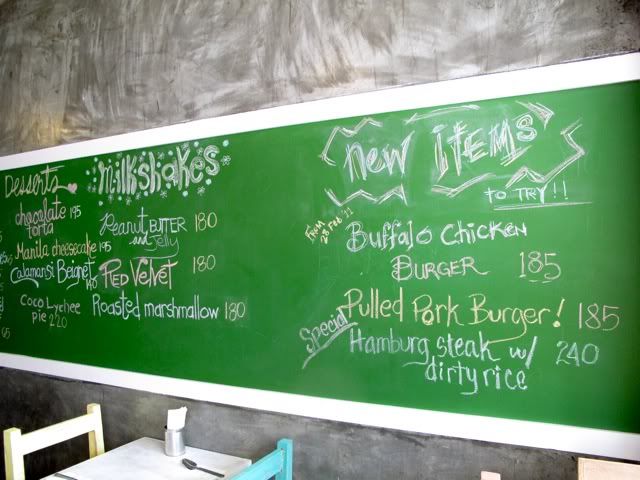 Desserts
chocolate 195
torta
Manila cheesecake 195
Calamansi Beignet
140
Coco Lychee
Pie 220
65
Milkshakes
Peanut BUTTER 180
and Jelly
RED VELVET 180
Roasted marshmallow 180
New ITEMS
TO TRY!!
From
23 Feb '11
Buffalo Chicken
BURGER 185
Pulled Pork Burger! 185
Special
Hamburg steak w/ 240
dirty rice